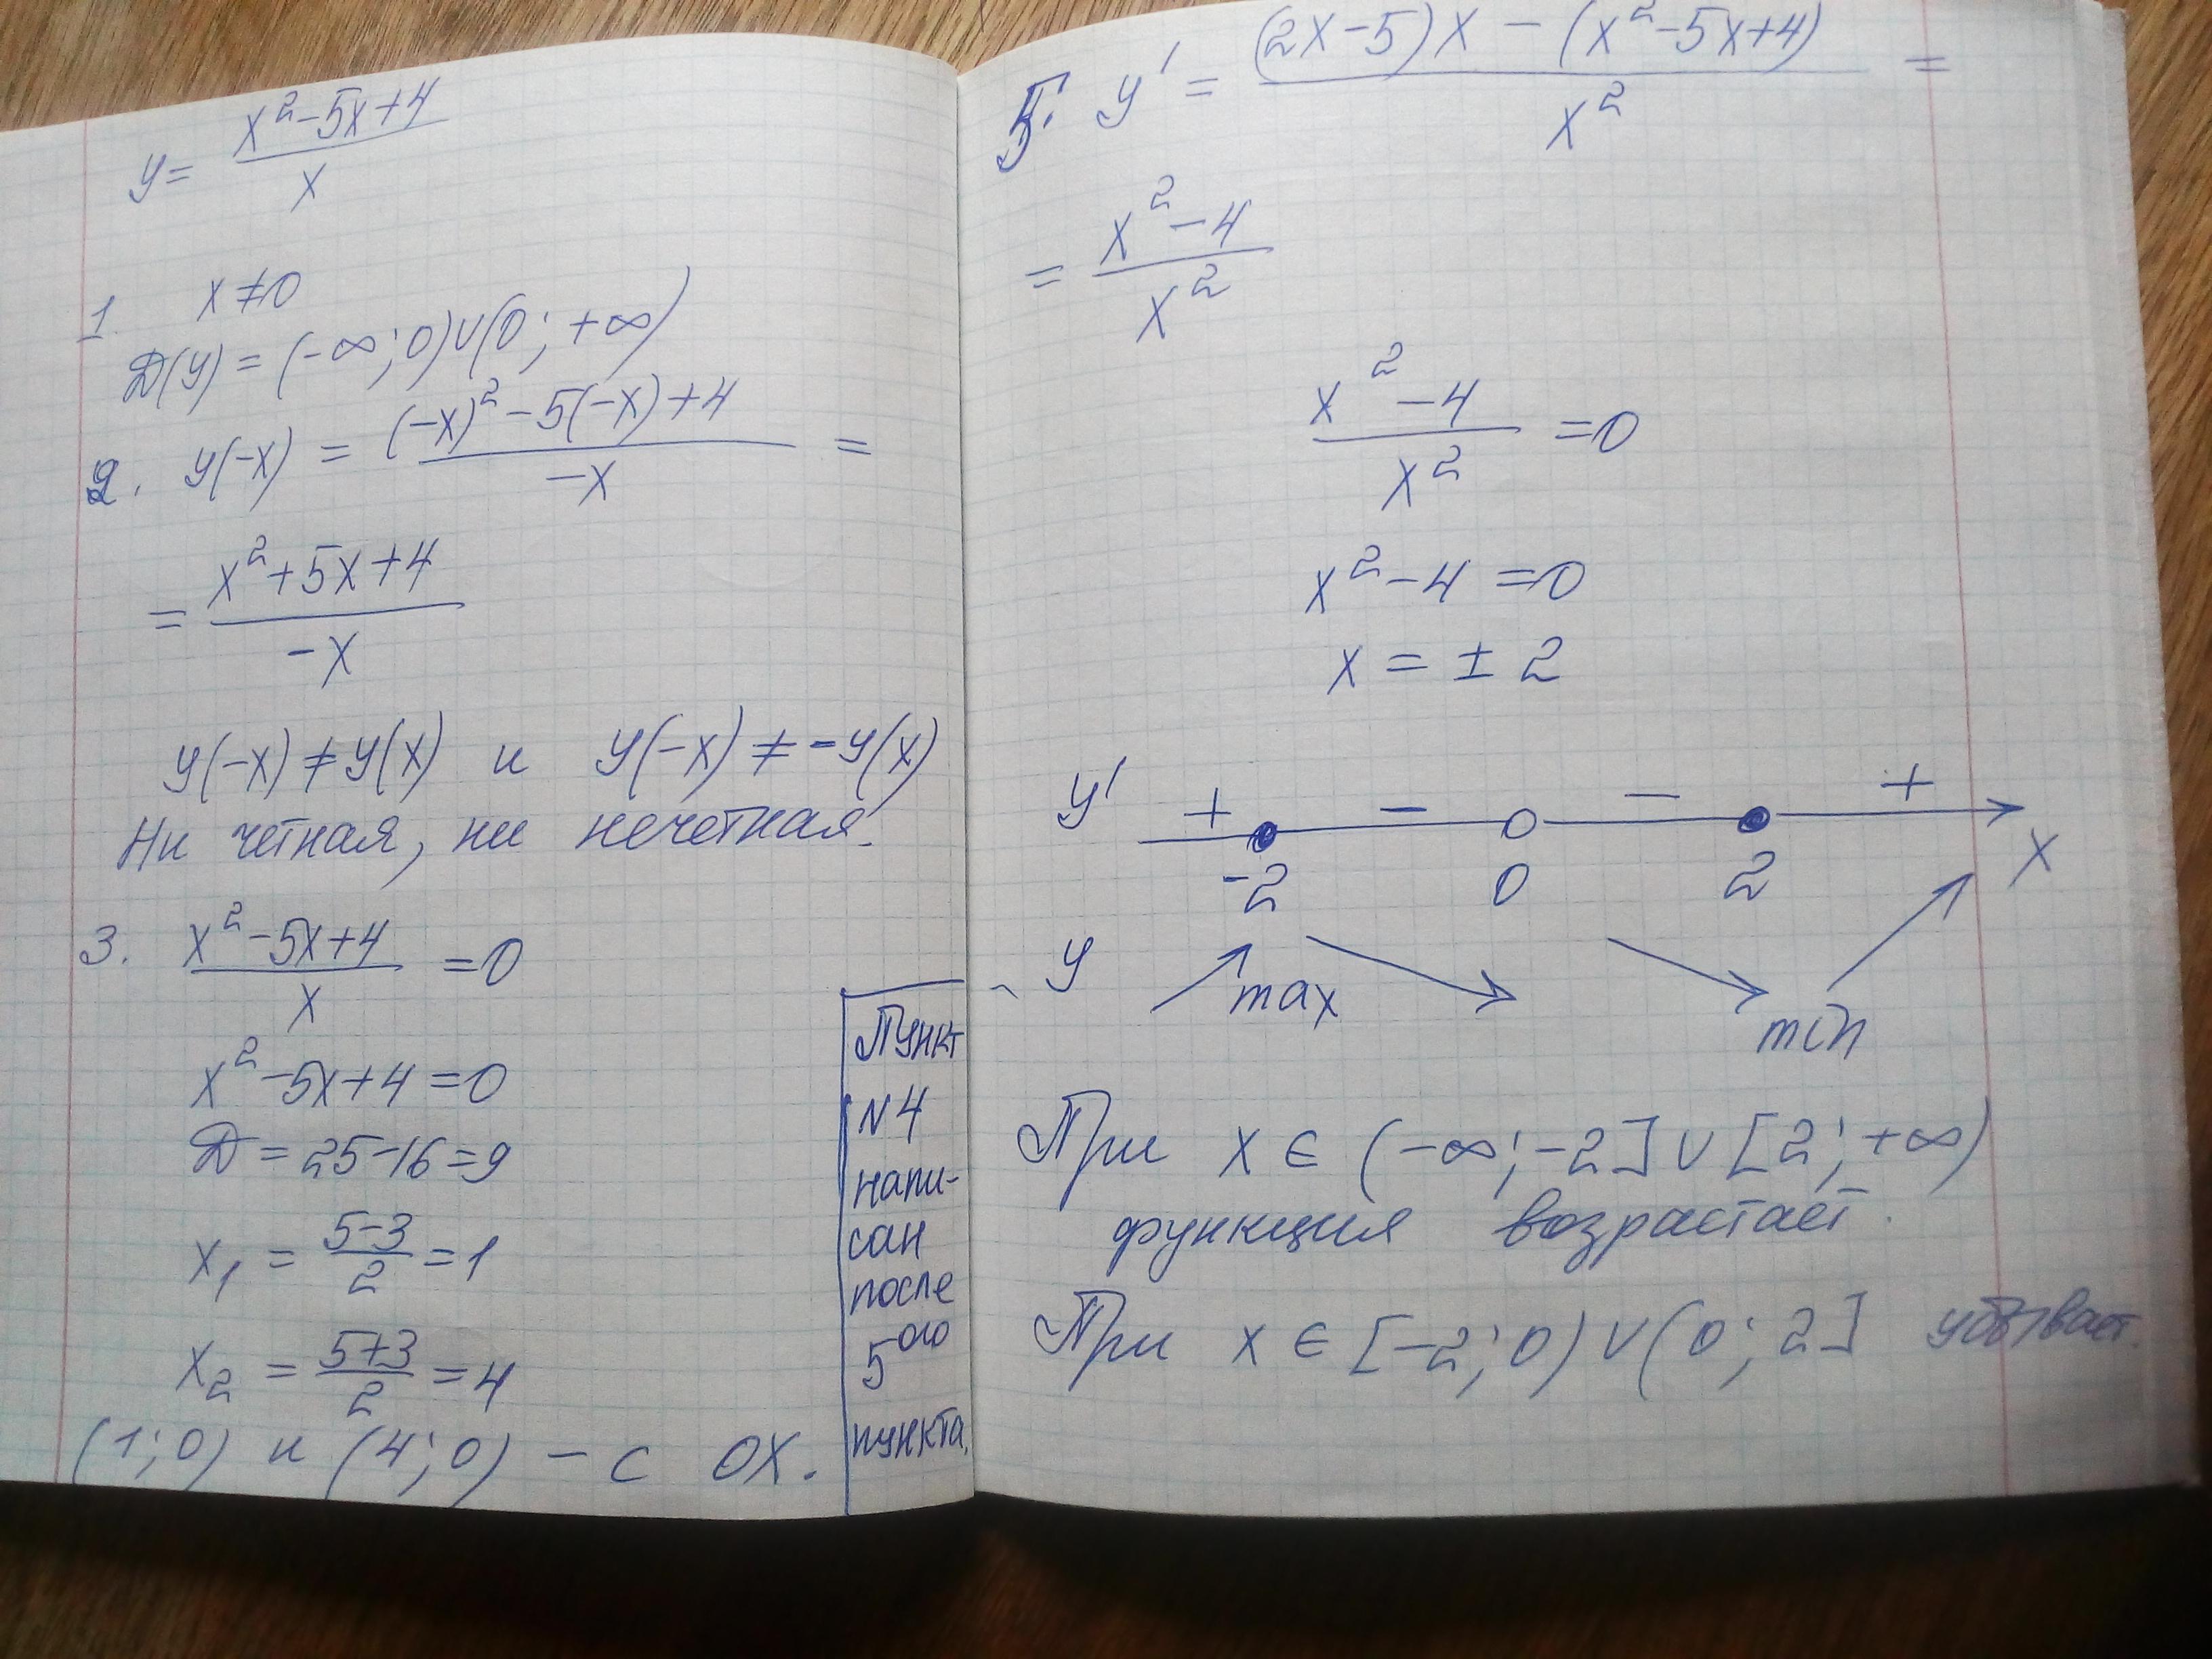 y = (x²-5x+4)/x
1. x≠0
Д(y) = (-∞; 0)∪(0; +∞)
2. y(-x) = ((-x)²-5(-x)+4)/(-x) =
= (x²+5x+4)/(-x)
y(-x)≠y(x) и y(-x)≠-y(x)
Ни четная, ни нечетная.
3. (x²-5x+4)/x = 0
x²-5x+4=0
Д = 25-16=9
x₁ = (5-3)/2 = 1
x₂ = (5+3)/2 = 4
(1; 0) и (4; 0) - с OX.
Пункт
N4
напи-
сан
после
5ого
пункта.
5. y' = ((2x-5)x - (x²-5x+4))/x² =
= (x²-4)/x²
(x²-4)/x² = 0
x²-4=0
x = ±2
y' + - - +
-2 0 2 x
y max min
При x ∈ (-∞; -2] ∪ [2; +∞)
функция возрастает.
При x ∈ [-2; 0) ∪ (0; 2] убывает.